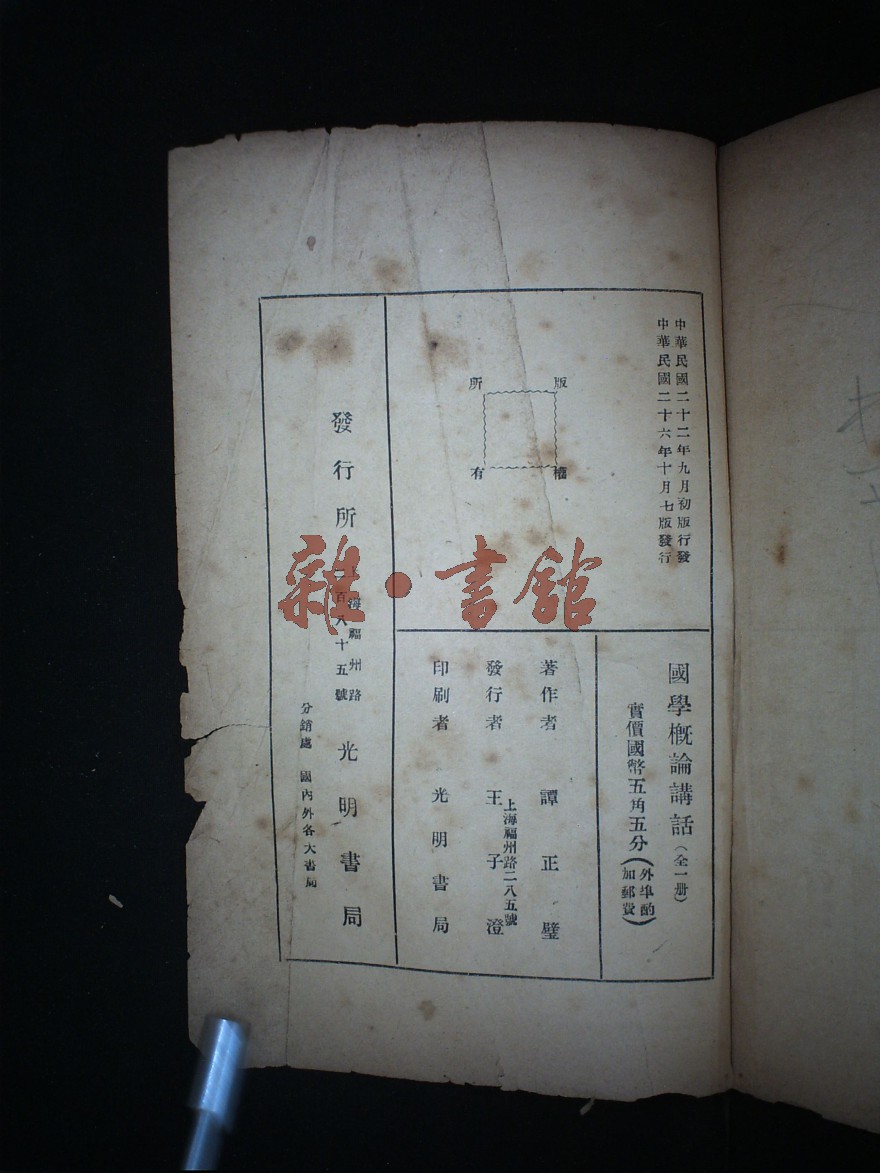 中華民國二十二年九月初版行發
中華民國二十六年十月七版發行
版權所有
國學概論講話（全一册）
實價國幣五角五分（外埠酌加郵費）
著作者 譚正璧
上海福州路二八五號
發行者 王子澄
印刷者 光明書局
發行所
上海福州路
二百八十五號
光明書局
分銷處 國內外各大書局
雜·書館